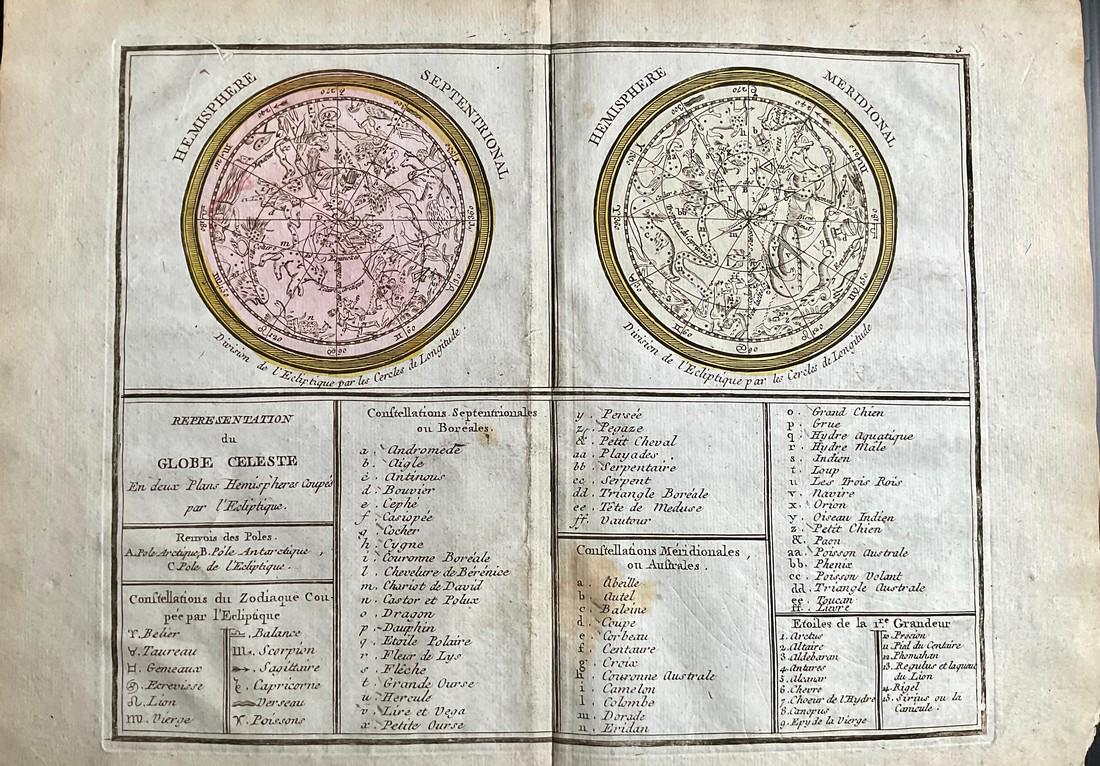 5
HEMISPHERE SEPTENTRIONAL
Division de l'Ecliptique par les Cercles de Longitude.
HEMISPHERE MERIDIONAL
Division de l'Ecliptique par les Cercles de Longitude
REPRESENTATION
du
GLOBE CELESTE
En deux Plans Hemispheres Coupés
par l'Ecliptique.
Renvois des Poles.
A.Pole Arctique,B.Pôle Antarctique,
C.Pole de l'Ecliptique.
Conſtellations du Zodiaque Cou-
pée par l'Ecliptique
♈.Belier
♉.Taureau
♊.Gemeaux
♋.Ecrevisse
♌.Lion
♍.Vierge
♎.Balance
♏.Scorpion
♐.Sagittaire
♑.Capricorne
♒.Verseau
♓.Poissons
Conſtellations Septentrionales
ou Boréales.
a. Andromede
b. Aigle
c. Antinous
d. Bouvier
e. Cephé
f. Casiopée
g. Cocher
h. Cygne
i. Couronne Boréale
l. Chevelure de Bérénice
m. Chariot de David
n. Castor et Polux
o. Dragon
p. Dauphin
q. Etoile Polaire
r. Fleur de Lys
s. Flêche
t. Grande Ourse
u. Hercule
v. Lire et Vega
x. Petite Ourse
y. Persée
z. Pegaze
&. Petit Cheval
aa. Playades.
bb. Serpentaire
cc. Serpent
dd. Triangle Boréale
ee. Tête de Meduse
ff. Vautour
Conſtellations Méridionales,
ou Auſtrales.
a. Abeille
b. Autel
c. Baleine
d. Coupe
e. Corbeau
f. Centaure
g. Croix
h. Couronne Australe
i. Camelon
l. Colombe
m. Dorade
n. Eridan
o. Grand Chien
p. Grue
q. Hydre Aquatique
r. Hydre Male
s. Indien
t. Loup
u. Les Trois Rois
v. Navire
x. Orion
y. Oiseau Indien
z. Petit Chien
&. Paon
aa. Poisson Australe
bb. Phenix
cc. Poisson Volant
dd. Triangle Australe
ee. Toucan
ff. Lievre
Etoiles de la 1.re Grandeur
1. Arctus
2. Altaire
3. Aldebaran
4. Antares
5. Alcanar
6. Chevre
7. Choeur de l'Hydre
8. Canopus
9. Epy de la Vierge
10. Procion
11. Pied du Centaire
12. Phomahan
13. Regulus et la queue
du Lion
14. Rigel
15. Sirius ou la
Canicule.